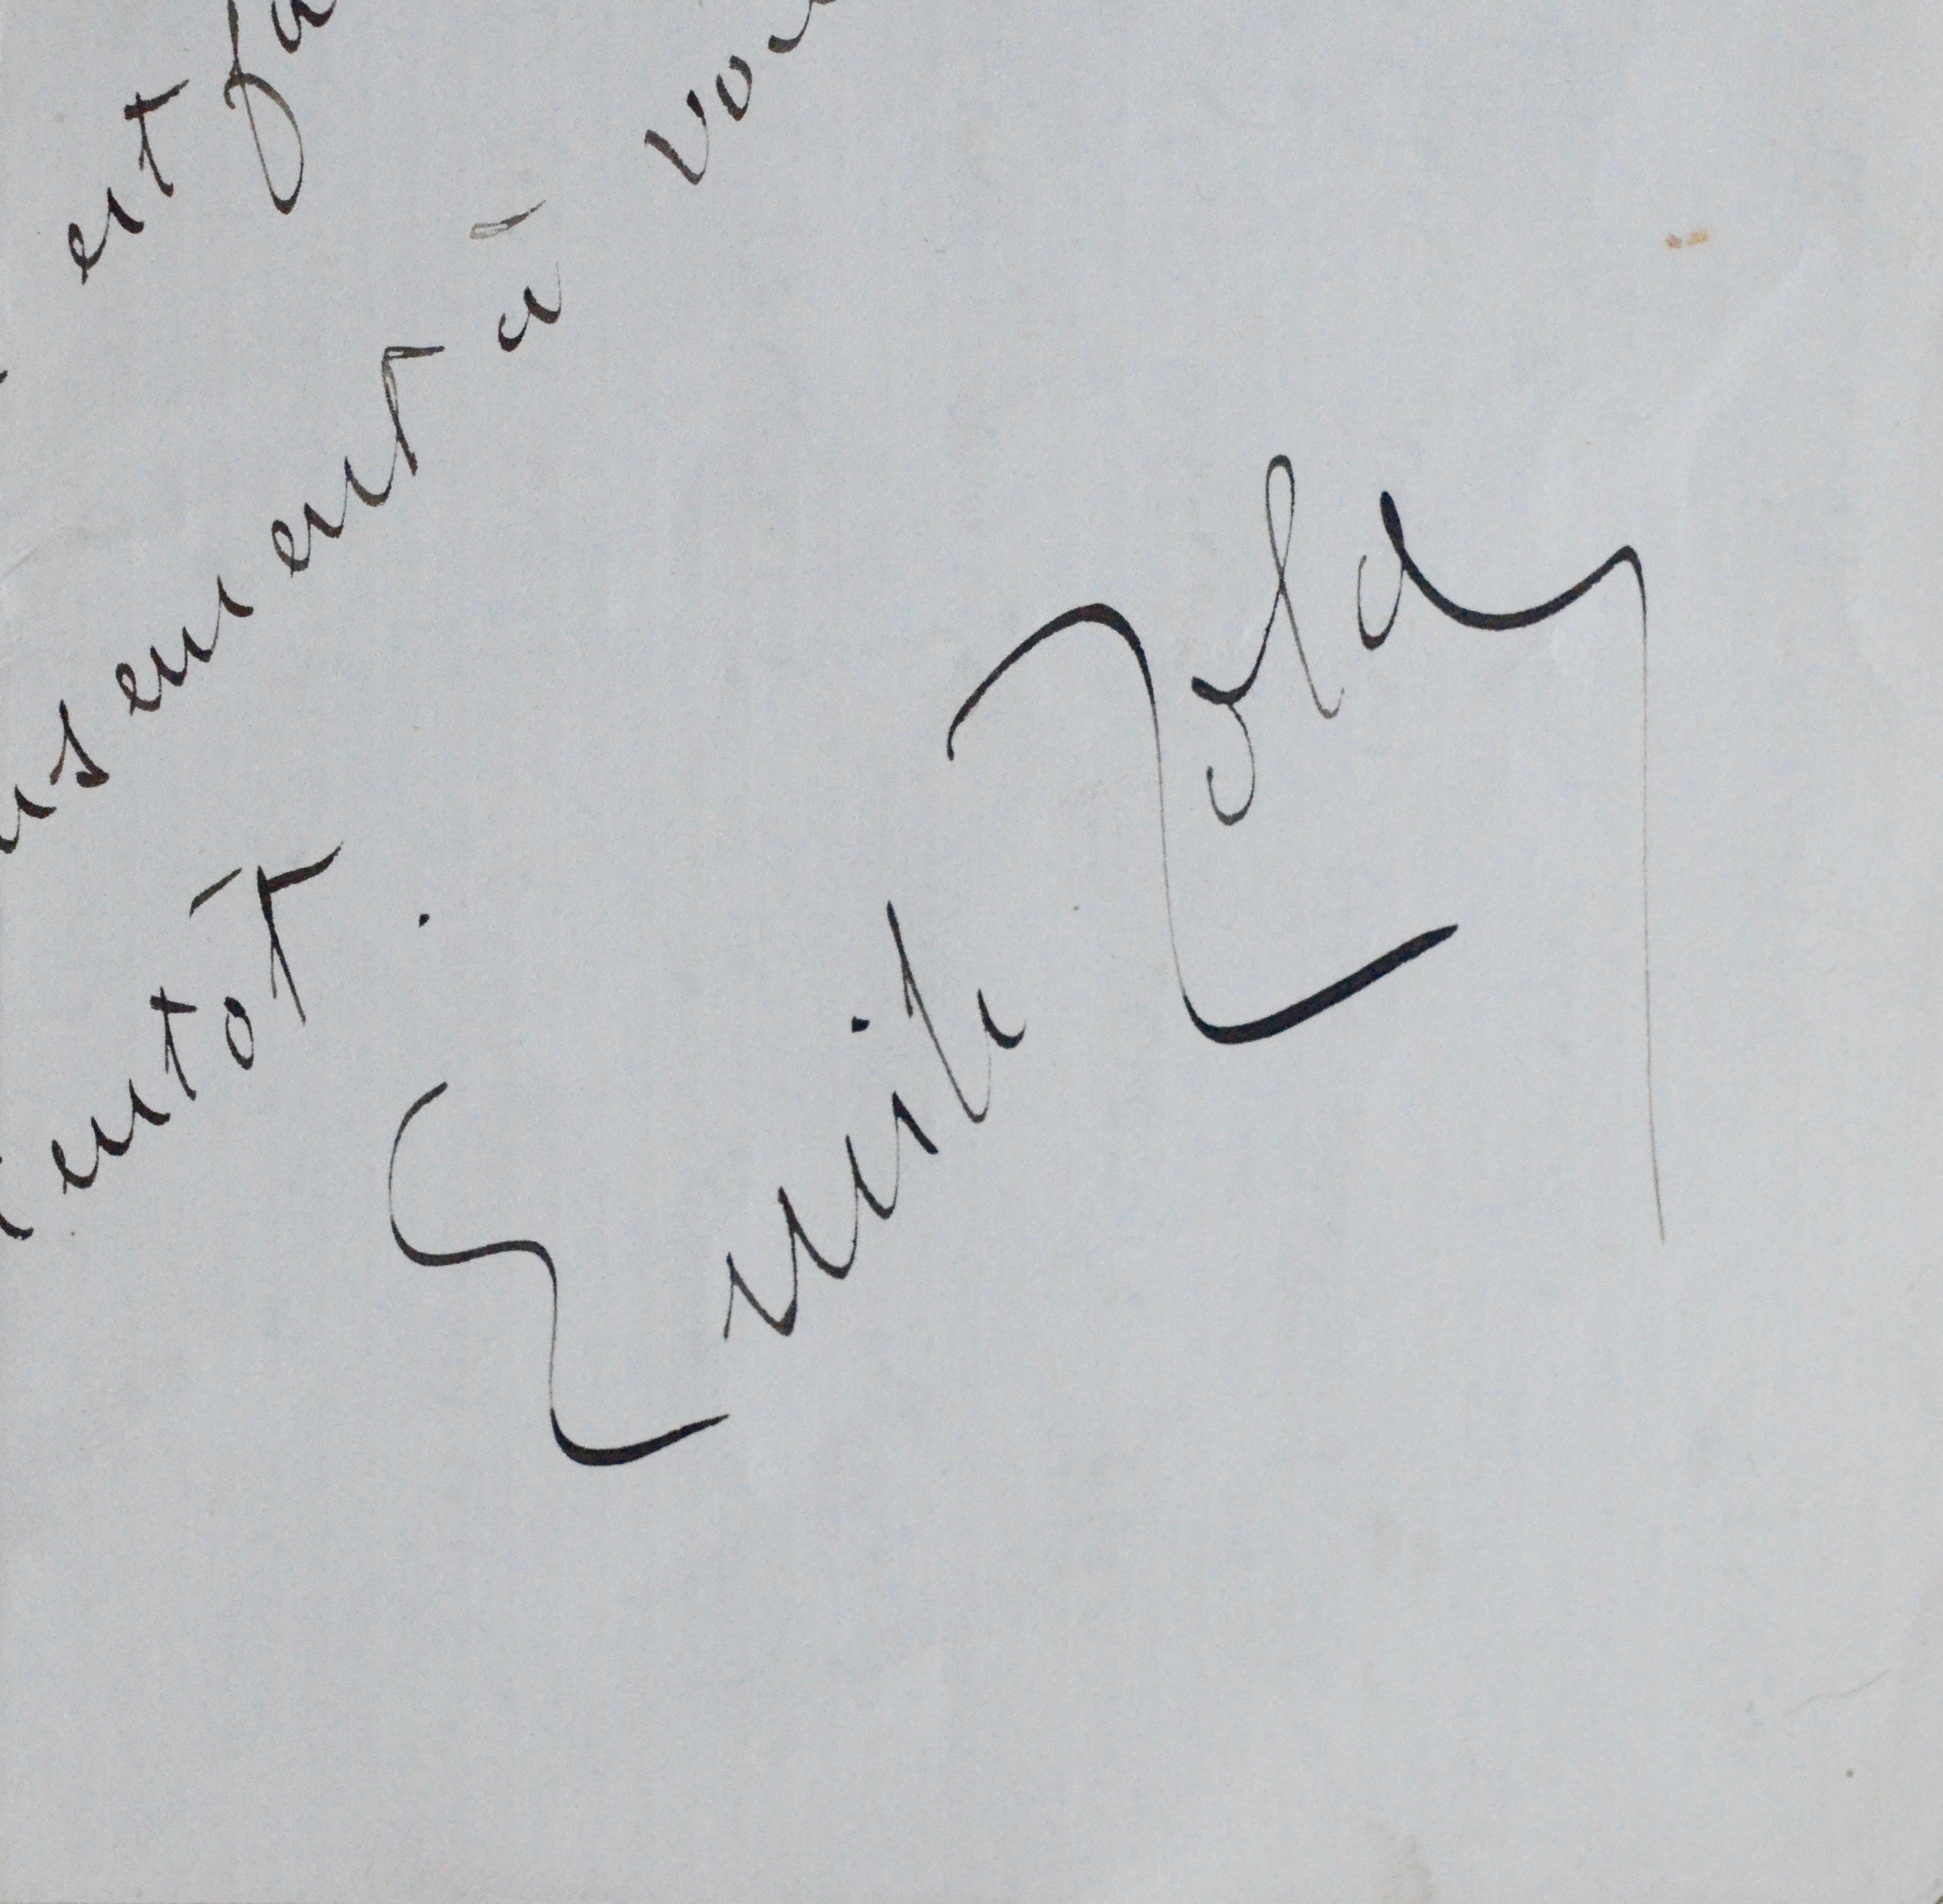 est fa
usement à vo
ientôt.
Emile Zola